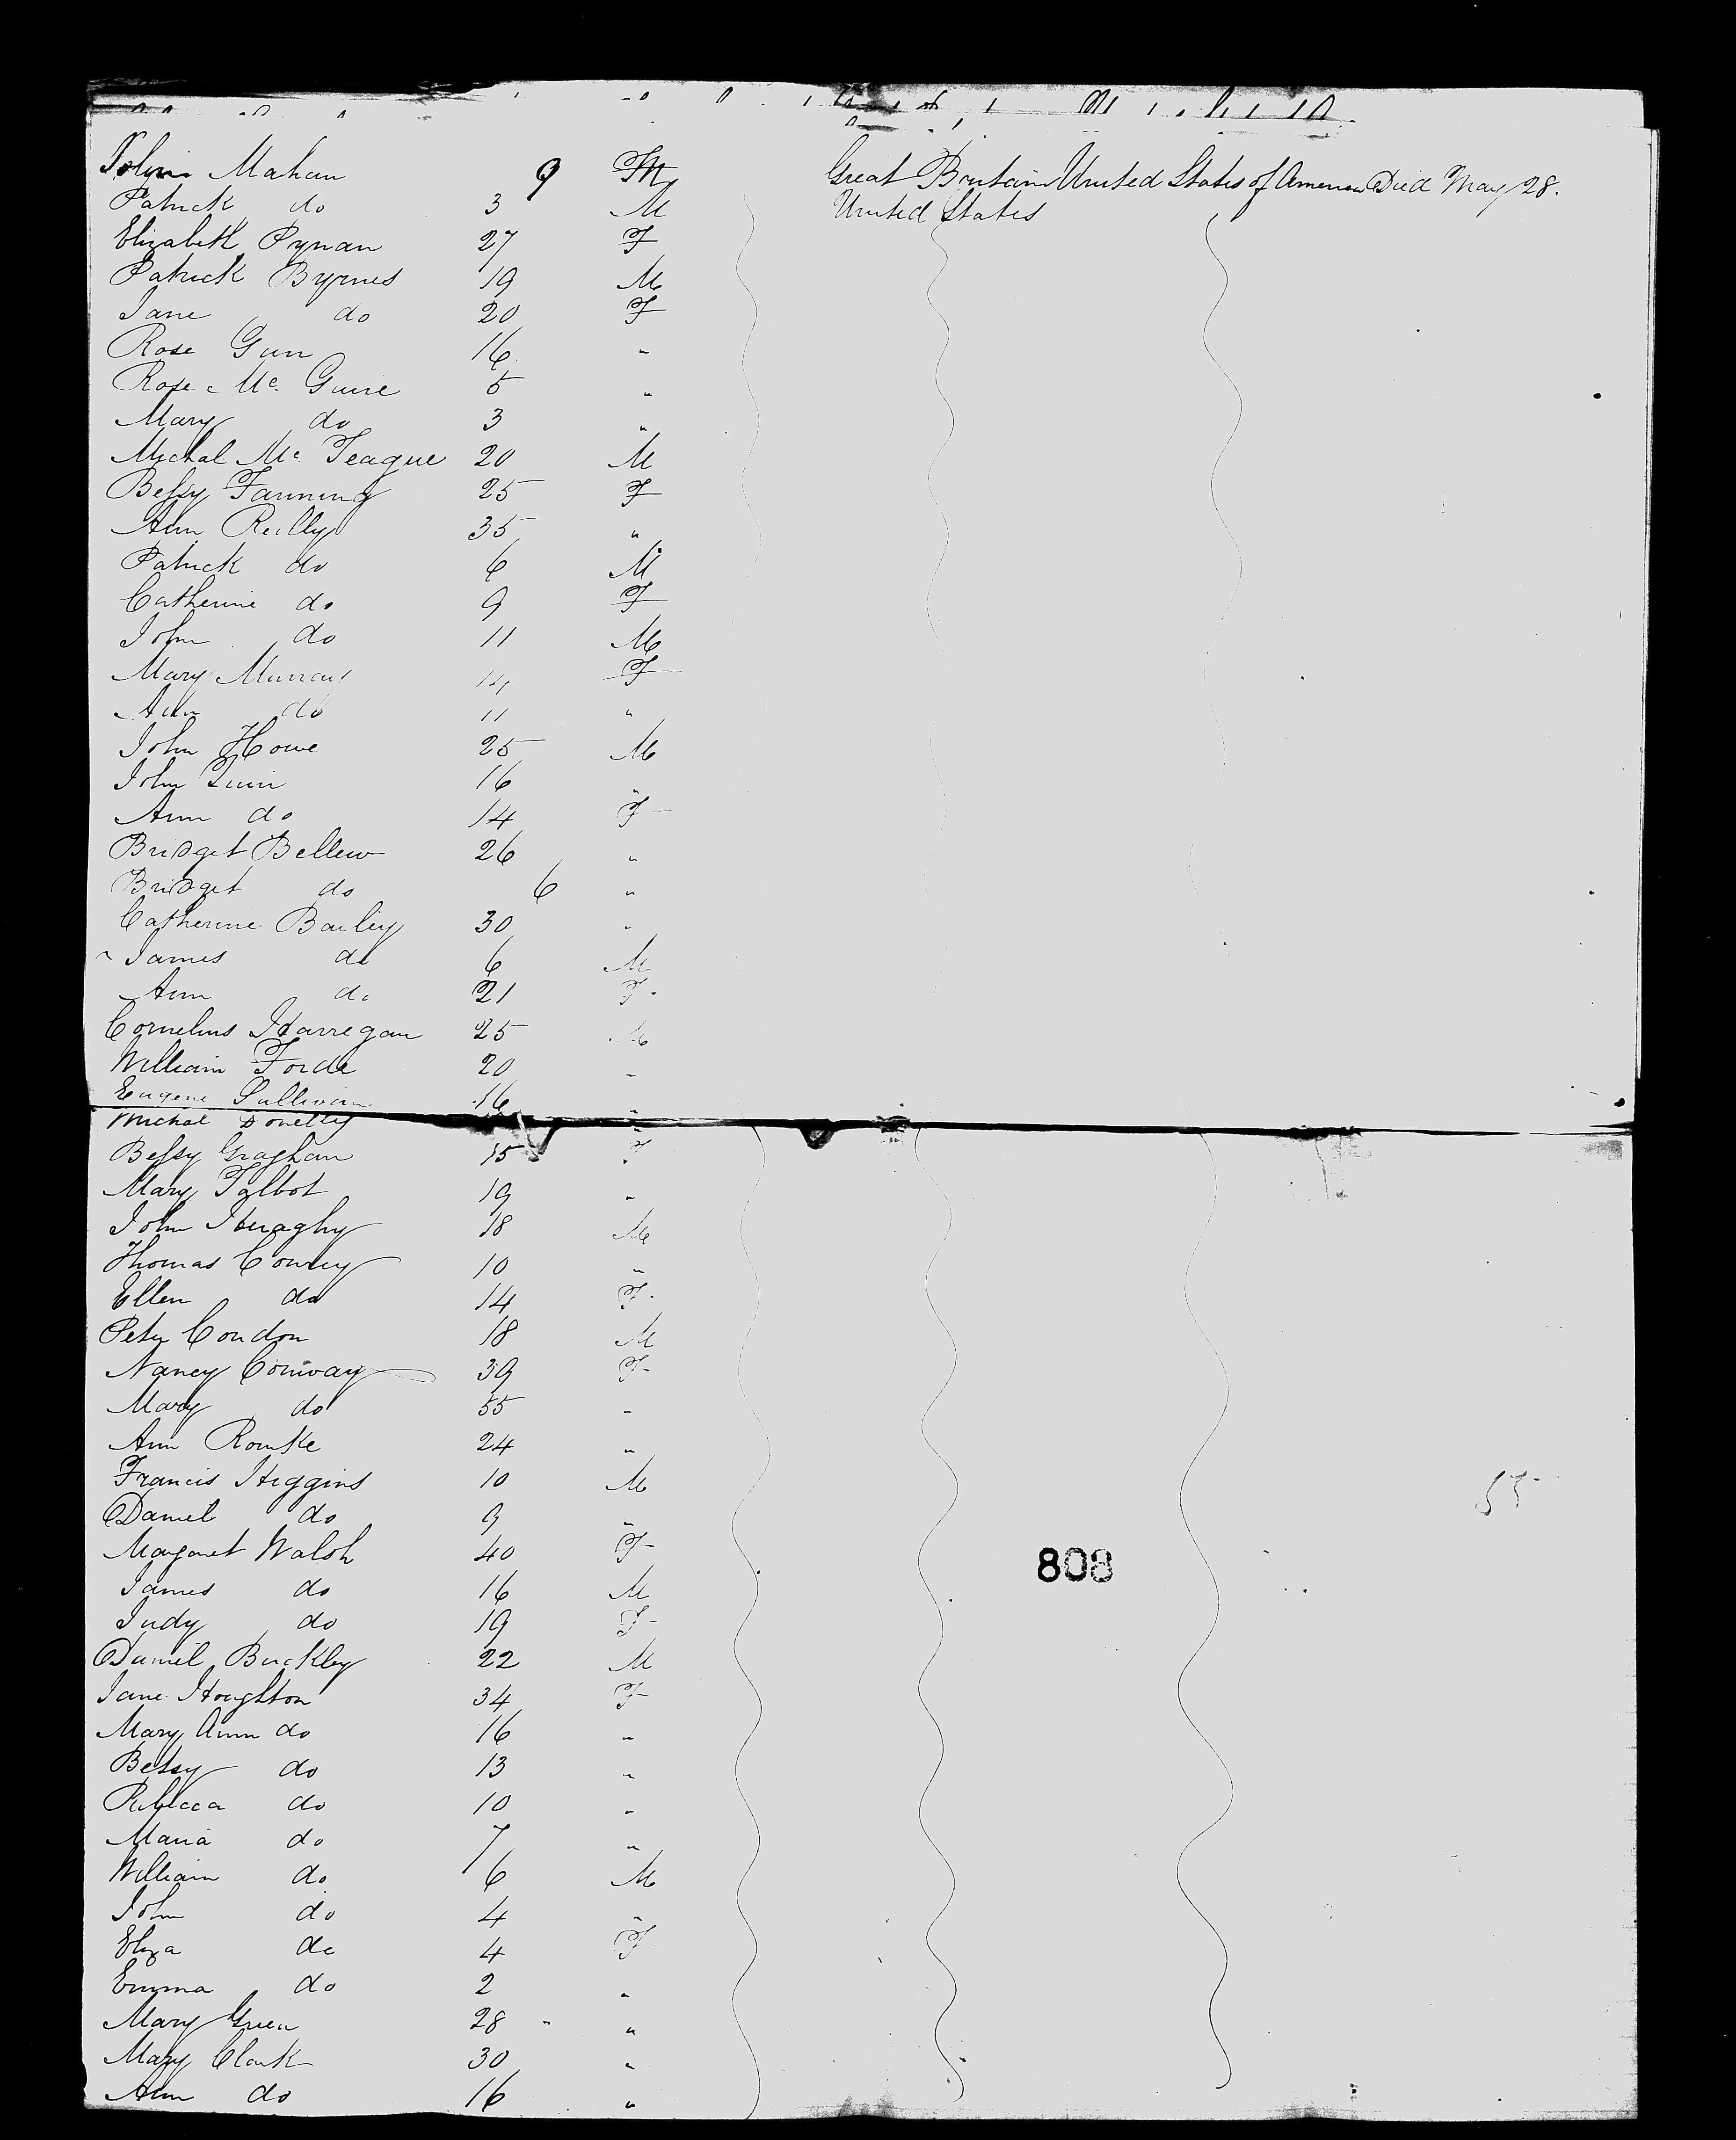 John Mahan 9 M Great Britain United States of America Died May 28.
Patrick do 3 M United States
Elizabeth Pynan 27 F
Patrick Byrnes 19 M
Jane do 20 F
Rose Gun 16 "
Rose Mc. Guire 5 "
Mary do 3 "
Michal Mc Teague 20 M
Bessy Fanning 25 F
Ann Reilly 35 "
Patrick do 6 M
Catherine do 9 F
John do 11 M
Mary Murray 14 F
Ann do 11 "
John Howe 25 M
John Quin 16 "
Ann do 14 F
Bridget Bellew 26 "
Bridget do 6 "
Catherine Bailey 30 "
James do 6 M
Ann do 21 F
Cornelius Harregan 25 M
William Forde 20 "
Eugene Sullivan 16 "
Michal Donelly "
Bessy Graghan 15 F
Mary Talbot 19 "
John Heraghy 18 M
Thomas Conrey 10 "
Ellen do 14 F
Peter Condon 18 M
Nancy Conway 39 F
Mary do 55 "
Ann Rourke 24 "
Francis Higgins 10 M
Daniel do 9 "
Margaret Walsh 40 F
808
James do 16 M
Judy do 19 F
Daniel Buckley 22 M
Jane Houghton 34 F
Mary Ann do 16 "
Betsy do 13 "
Rebecca do 10 "
Maria do 7 "
William do 6 M
John do 4 "
Eliza do 4 F
Emma do 2 "
Mary Green 28 "
Mary Clark 30 "
Ann do 16 "